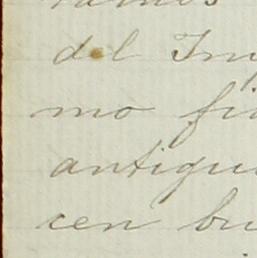 del Im
mo fi
antigu
cen bu